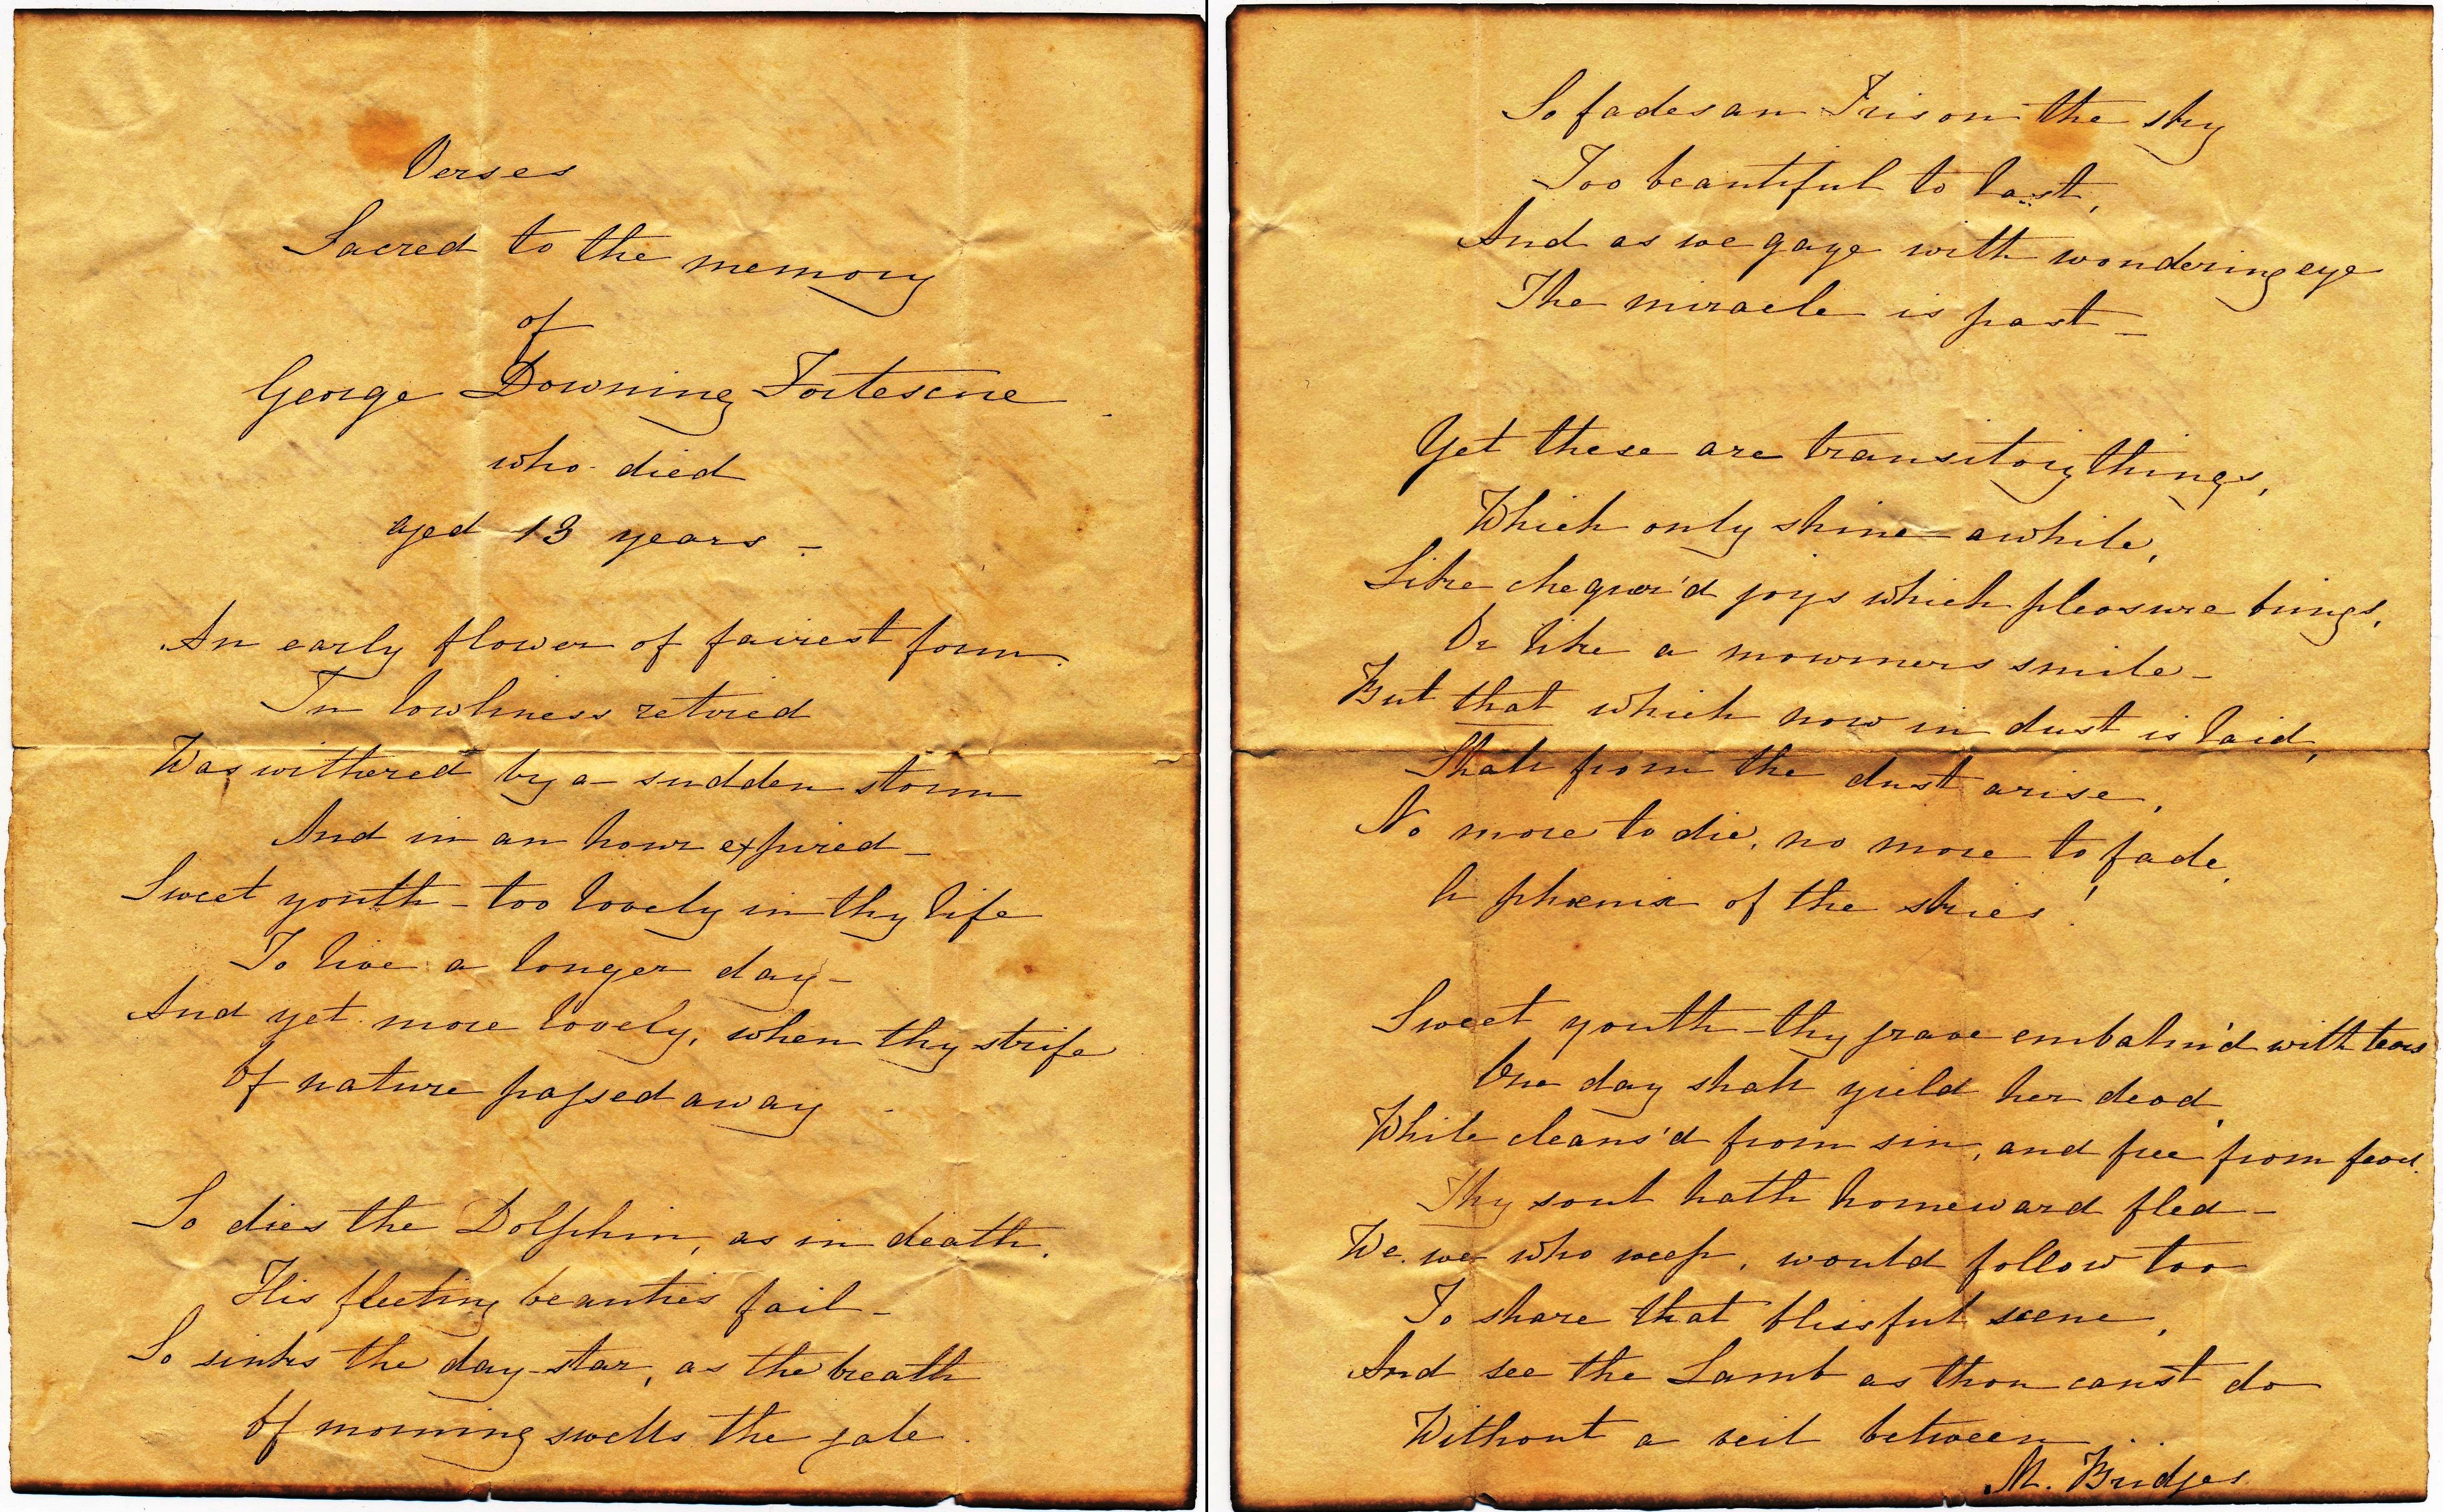 Verses
Sacred to the memory
of
George Downing Fortescue
who died
aged 13 years -
An early flower of fairest form.
In lowliness retired
Was withered by a sudden storm
And in an hour expired -
Sweet youth - too lovely in thy life
To live a longer day -
And yet more lovely, when thy strife
Of nature passed away
So dies the Dolphin, as in death,
His fleeting beauties fail -
So sinks the day-star, as the breath
Of morning swells the gale.
So fades an Iris on the sky
Too beautiful to last,
And as we gaze with wondering eye
The miracle is past -
Yet these are transitory things,
Which only shine awhile,
Like chequer'd joys which pleasure brings,
Or like a mourners smile -
But that which now in dust is laid,
Shall from the dust arise,
No more to die, no more to fade,
A phœnix of the skies!
Sweet youth - thy grave embalm'd with tears
One day shall yield her dead,
While cleans'd from sin, and free from fears.
Thy soul hath homeward fled -
We, we who weep, would follow too
To share that blissful scene,
And see the Lamb as thou canst do
Without a veil between.
M. Bridges.